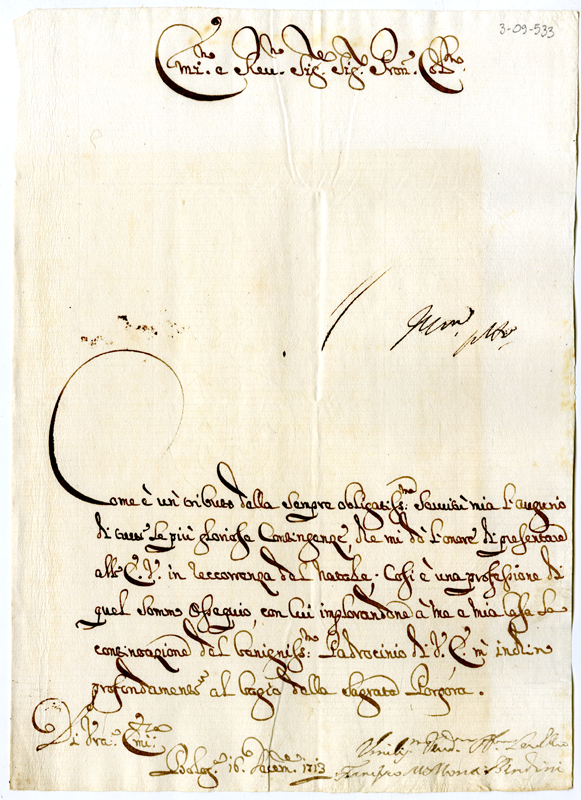 3-09-533
Em.mo e Reu.mo Sig.re Sig.r Pron. Col.mo
Come è un tributo della sempre obligatiss.ma Seruitù mia l'augurio
di tutte le più gloriose Contingenze, che mi dò l'onore di presentare
all'E. V. in reccorrenza del Natale; Così è una professione di
quel sommo Ossequio, con cui implorandone à me e mia Casa la
continoazione del benigniss.mo Padrocinio di V. E. m'inchino
profondamente al bagio della sagrata Porpora.
Di Vra. Em.za
Bolog.a 16. Dicem.e 1713
Vmiliss.